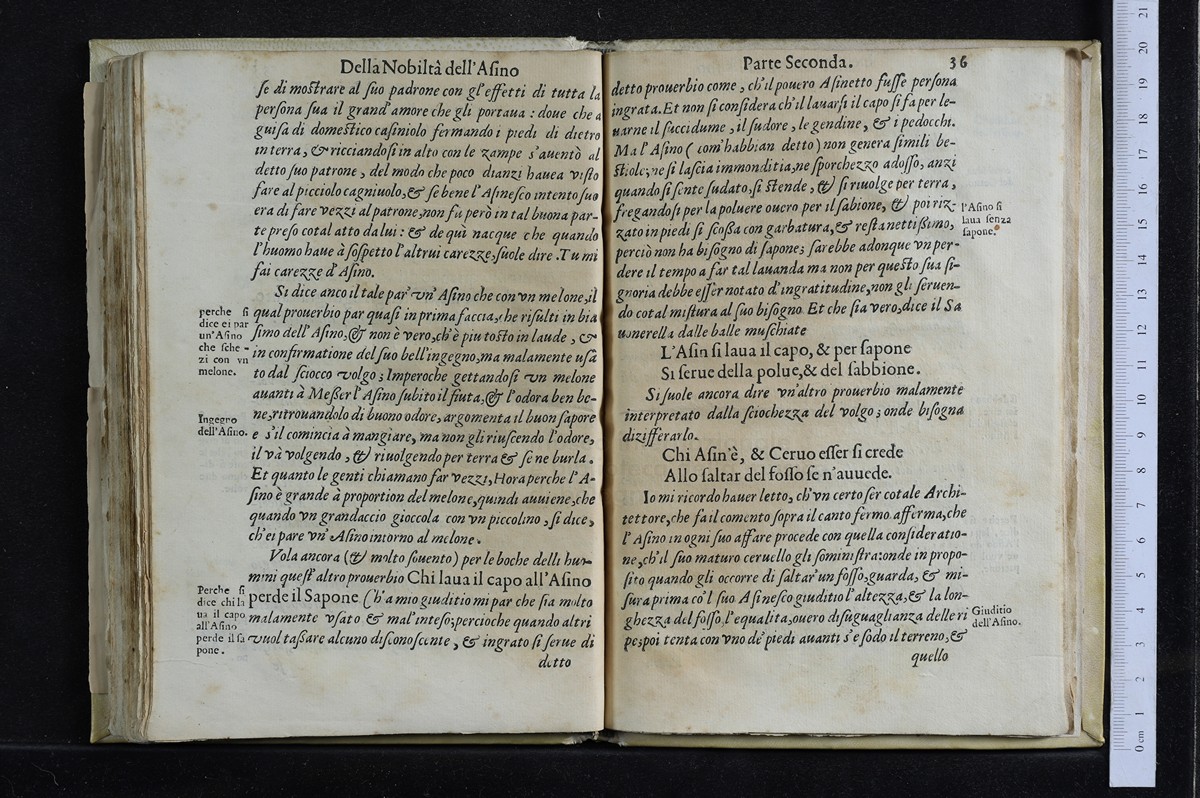 Della Nobiltà dell'Asino
se di mostrare al suo padrone con gl'effetti di tutta la
persona sua il grand'amore che gli portaua: doue che a
guisa di domestico casiniolo fermando i piedi di dietro
in terra, & ricciandosi in alto con le zampe s'auentò al
detto suo patrone, del modo che poco dianzi hauea visto
fare al picciolo cagniuolo, & se bene l'Asinesco intento suo
era di fare vezzi al patrone, non fu però in tal buona par-
te preso cotal atto da lui: & de quì nacque che quando
l'huomo haue à sospetto l'altrui carezze, suole dire. Tu mi
fai carezze d'Asino.
Si dice anco il tale par' vn' Asino che con vn melone, il
qual prouerbio par quasi in prima faccia, che risulti in bia
simo dell' Asino, & non è vero, ch'è piu tosto in laude, &
in confirmatione del suo bell'ingegno, ma malamente vsa
to dal sciocco volgo; Imperoche gettandosi vn melone
auanti à Messer l'Asino subito il fiuta, & l'odora ben be-
ne, ritrouandolo di buono odore, argomenta il buon sapore
e s'il comincia à mangiare, ma non gli riuscendo l'odore,
il và volgendo, & riuolgendo per terra & se ne burla.
Et quanto le genti chiamano far vezzi, Hora perche l'A-
sino è grande à proportion del melone, quindi auuiene, che
quando vn grandaccio gioccola con vn piccolino, si dice,
ch'ei pare vn' Asino intorno al melone.
Vola ancora (& molto souento) per le boche delli huo-
mini quest' altro prouerbio Chi laua il capo all'Asino
perde il Sapone. Ch'a mio giuditio mi par che sia molto
malamente vsato & mal'inteso; percioche quando altri
vuol tassare alcuno disconoscente, & ingrato si serue di
detto
perche si
dice ei par
un'Asino
che sche-
zi con vn
melone.
Ingegno
dell'Asino.
Perche si
dice chi la
ua il capo
all'Asino
perde il sa
pone.
Parte Seconda. 36
detto prouerbio come, ch'il pouero Asinetto fusse persona
ingrata. Et non si considera ch'il lauarsi il capo si fa per le-
uarne il succidume, il sudore, le gendine, & i pedocchi.
Ma l'Asino (com'habbian detto) non genera simili be-
stiole; ne si lascia immonditia, ne sporchezzo adosso, anzi
quando si sente sudato, si stende, & si riuolge per terra,
fregandosi per la poluere ouero per il sabione, & poi riz-
zato in piedi si scossa con garbatura, & resta nettissimo,
perciò non ha bisogno di sapone; sarebbe adonque vn per-
dere il tempo a far tal lauanda ma non per questo sua si-
gnoria debbe esser notato d'ingratitudine, non gli seruen-
do cotal mistura al suo bisogno Et che sia vero, dice il Sa
uonerella dalle balle muschiate
L'Asin si laua il capo, & per sapone
Si serue della polue, & del sabbione.
Si suole ancora dire vn'altro prouerbio malamente
interpretato dalla sciochezza del volgo; onde bisogna
dizifferarlo.
Chi Asin'è, & Ceruo esser si crede
Allo saltar del fosso se n'auuede.
Io mi ricordo hauer letto, ch'vn certo ser cotale Archi-
tettore, che fa il comento sopra il canto fermo afferma, che
l'Asino in ogni suo affare procede con quella consideratio-
ne, ch'il suo maturo ceruello gli somministra: onde in propo-
sito quando gli occorre di saltar' un fosso, guarda, & mi-
sura prima co'l suo Asinesco giuditio l'altezza, & la lon-
ghezza del fosso, l'equalita, ouero disuguaglianza delle ri
pe; poi tenta con vno de' piedi auanti s'e sodo il terreno, &
quello
l'Asino si
laua senza
sapone.
Giuditio
dell'Asino.
0 cm 1 2 3 4 5 6 7 8 9 10 11 12 13 14 15 16 17 18 19 20 21